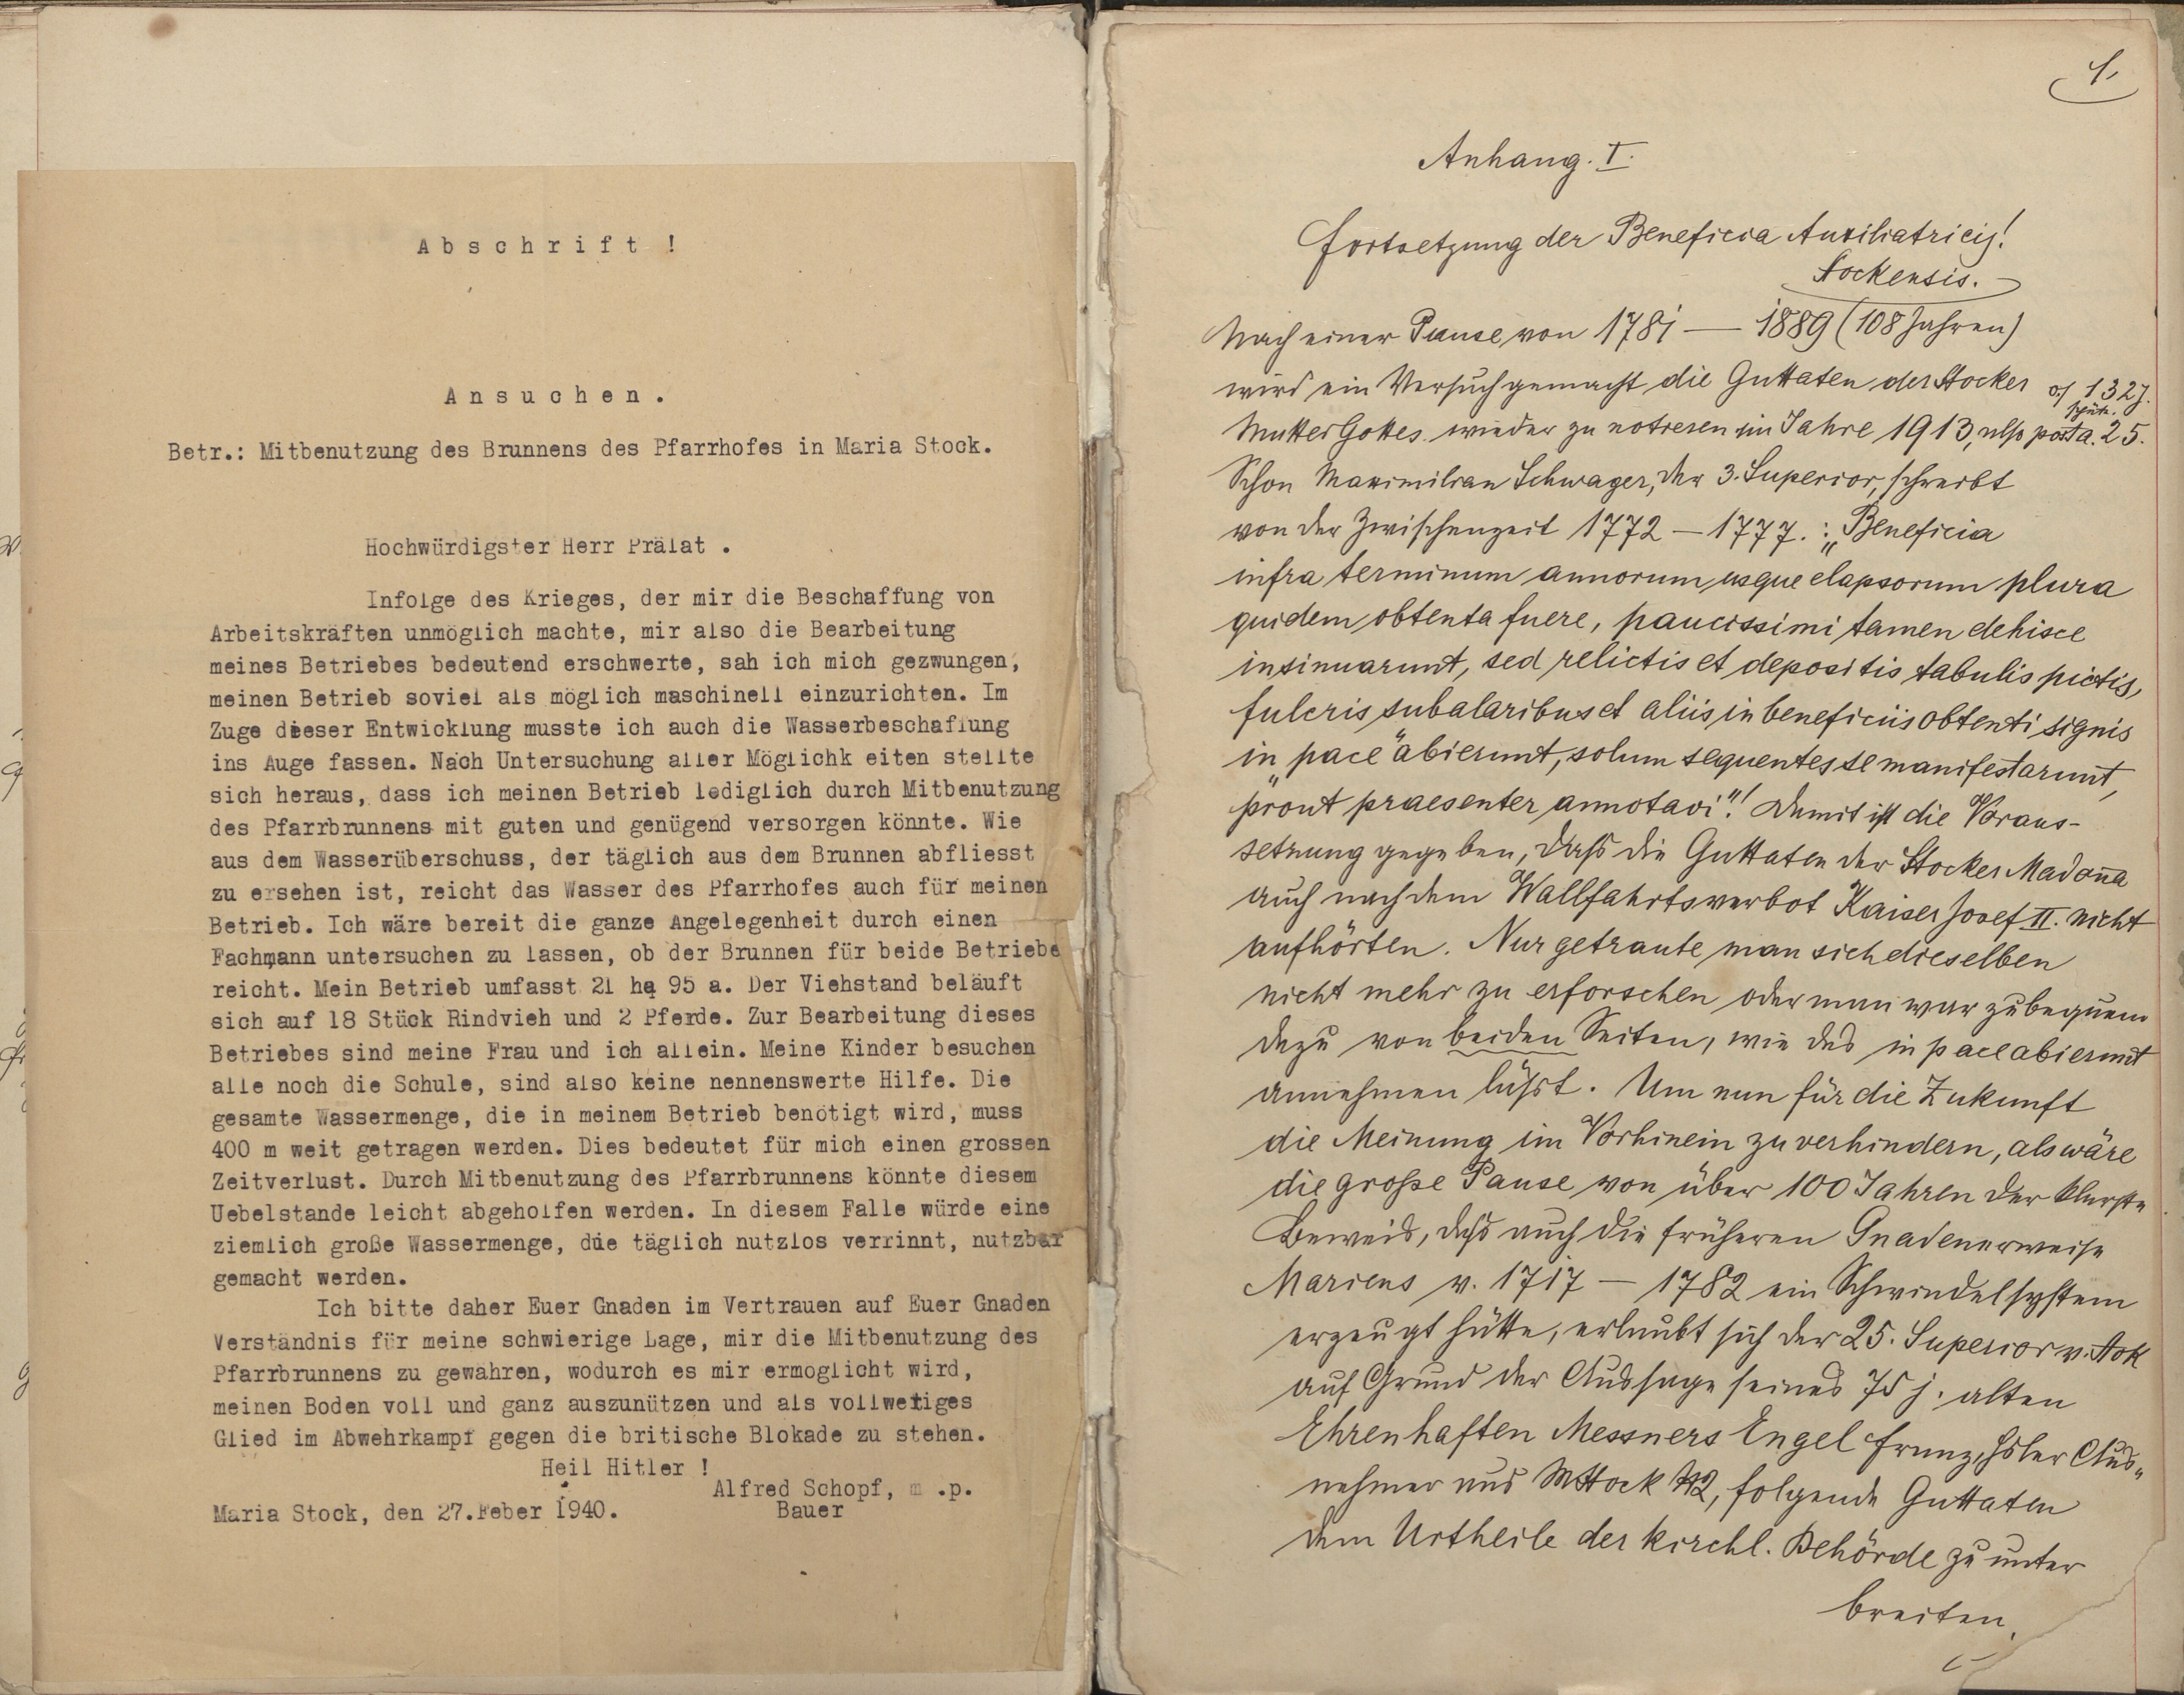 Abschrift !
Ansuchen.
Betr.: Mitbenutzung des Brunnens des Pfarrhofes in Maria Stock.
Hochwürdigster Herr Prälat .
Infolge des Krieges, der mir die Beschaffung von
Arbeitskräften unmöglich machte, mir also die Bearbeitung
meines Betriebes bedeutend erschwerte, sah ich mich gezwungen,
meinen Betrieb soviel als möglich maschinell einzurichten. Im
Zuge dieser Entwicklung musste ich auch die Wasserbeschaffung
ins Auge fassen. Nach Untersuchung aller Möglichk eiten stellte
sich heraus, dass ich meinen Betrieb lediglich durch Mitbenutzung
des Pfarrbrunnens mit guten und genügend versorgen könnte. Wie
aus dem Wasserüberschuss, der täglich aus dem Brunnen abfliesst
zu ersehen ist, reicht das Wasser des Pfarrhofes auch für meinen
Betrieb. Ich wäre bereit die ganze Angelegenheit durch einen
Fachmann untersuchen zu lassen, ob der Brunnen für beide Betriebe
reicht. Mein Betrieb umfasst 21 ha 95 a. Der Viehstand beläuft
sich auf 18 Stück Rindvieh und 2 Pferde. Zur Bearbeitung dieses
Betriebes sind meine Frau und ich allein. Meine Kinder besuchen
alle noch die Schule, sind also keine nennenswerte Hilfe. Die
gesamte Wassermenge, die in meinem Betrieb benötigt wird, muss
400 m weit getragen werden. Dies bedeutet für mich einen grossen
Zeitverlust. Durch Mitbenutzung des Pfarrbrunnens könnte diesem
Uebelstande leicht abgeholfen werden. In diesem Falle würde eine
ziemlich große Wassermenge, die täglich nutzlos verrinnt, nutzbar
gemacht werden.
Ich bitte daher Euer Gnaden im Vertrauen auf Euer Gnaden
Verständnis für meine schwierige Lage, mir die Mitbenutzung des
Pfarrbrunnens zu gewähren, wodurch es mir ermoglicht wird,
meinen Boden voll und ganz auszunützen und als vollwertiges
Glied im Abwehrkampf gegen die britische Blokade zu stehen.
Heil Hitler !
Alfred Schopf, m .p.
Maria Stock, den 27.Feber 1940.
Bauer
1.
Anhang. I.
Fortsetzung der Beneficia Auxiliatricis!
Stockensis.
Nach einer Pause von 1781 — 1889 (108 Jahren)
wird ein Versuch gemacht die Guttaten der Stocker
132 J. spät.
Mutter Gottes wieder zu notieren im Jahre 1913, also post a. 25.
Schon Maximilian Schwager, der 3. Superior, schreibt
von der Zwischenzeit 1772 — 1777. : „Beneficia
infra terminum annorum usque elapsorum plura
quidem obtenta fuere, paucissimi tamen dehisce
insinuarunt, sed relictis et depositis tabulis pictis,
fulcris subalaribus et aliis in beneficiis obtenti signis
in „pace" abierunt, solum sequentes se manifestarunt,
prout praesenter annotavi"! Damit ist die Voraus-
setzung gegeben, daß die Guttaten der Stocker Madonna
auch nach dem Wallfahrtsverbot Kaiser Josef II. nicht
aufhörten. Nur getraute man sich dieselben
nicht mehr zu erforschen oder man war zu bequem
dazu von beiden Seiten, wie das in pace abierunt
annehmen läßt. Um nun für die Zukunft
die Meinung im Vorhinein zu verhindern, als wäre
die große Pause von über 100 Jahren der klarste
Beweis, daß auch die früheren Gnadenerweise
Mariens v. 1717 — 1782 ein Schwindelsystem
erzeugt hätte, erlaubt sich der 25. Superior v. Stok
auf Grund der Aussage seines 75 j. alten
Ehrenhaften Messners Engel Franz, Aus-
nehmer aus MStock 12, folgende Guttaten
dem Urtheile der kirchl. Behörde zu unter
breiten.